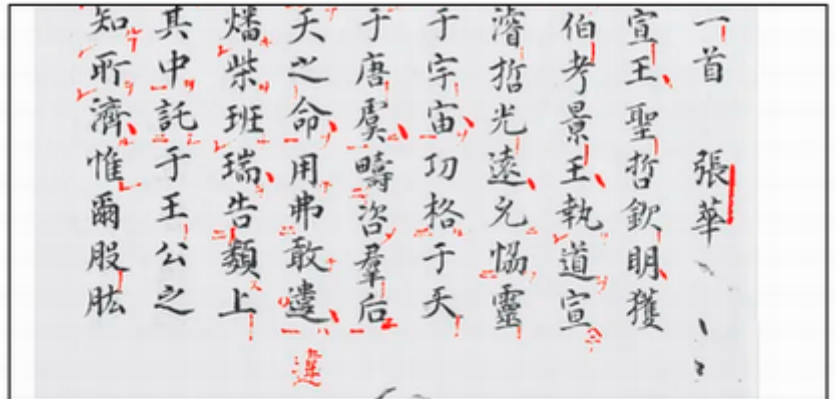 一首 張華
宣王聖哲欽明獲
伯考景王執道宣
濬哲光遠允恊靈
于宇宙功格于天
于唐虞疇咨羣后
天之命用弗敢違
違
燔柴班瑞告類上
其中託于王公之
知所濟惟爾股肱